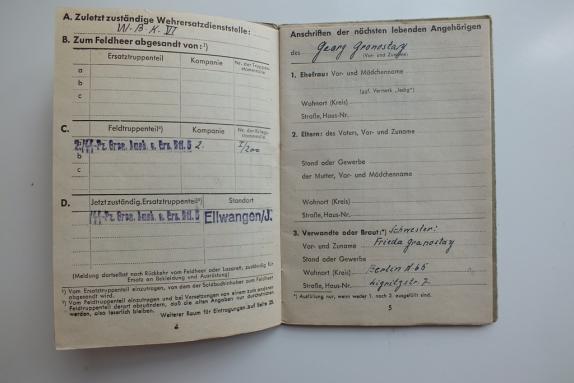 A. Zuletzt zuständige Wehrersatzdienststelle:
W.B.K. VI
B. Zum Feldheer abgesandt von:¹)
Ersatztruppenteil Kompanie Nr. der Truppen-stammrolle
a
b
c
C. Feldtruppenteil²) Kompanie Nr. der Kriegs-stammrolle
a Pz. Gren. Ausb. u. Ers. Btl. 5 2. I/200
b
c
D. Jetzt zuständig. Ersatztruppenteil³) Standort
Pz. Gren. Ausb. u. Ers. Btl. 5 Ellwangen/J.
(Meldung dortselbst nach Rückkehr vom Feldheer oder Lazarett, zuständig für
Ersatz an Bekleidung und Ausrüstung)
¹) Vom Ersatztruppenteil einzutragen, von dem der Soldbuchinhaber zum Feldheer
abgesandt wird.
²) Vom Feldtruppenteil einzutragen und bei Versetzungen von einem zum anderen
Feldtruppenteil derart abzuändern, daß die alten Angaben nur durchstrichen
werden, also leserlich bleiben.
Weiterer Raum für Eintragungen auf Seite
4
Anschriften der nächsten lebenden Angehörigen
des Georg Granostay
(Vor- und Zuname)
1. Ehefrau: Vor- und Mädchenname
(ggf. Vermerk „ledig")
Wohnort (Kreis)
Straße, Haus-Nr.
2. Eltern: des Vaters, Vor- und Zuname
Stand oder Gewerbe
der Mutter, Vor- und Mädchenname
Wohnort (Kreis)
Straße, Haus-Nr.
3. Verwandte oder Braut:*) Schwester:
Vor- und Zuname Frieda Granostay
Stand oder Gewerbe
Wohnort (Kreis) Berlin N 65
Straße, Haus-Nr.
*) Ausfüllung nur, wenn weder 1. noch 2. ausgefüllt sind.
5